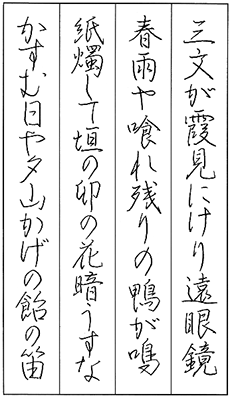 三文が霞見にけり遠眼鏡
春雨や喰れ残りの鴨が鳴
紙燭して垣の卯の花暗うすな
かすむ日や夕山かげの飴の笛